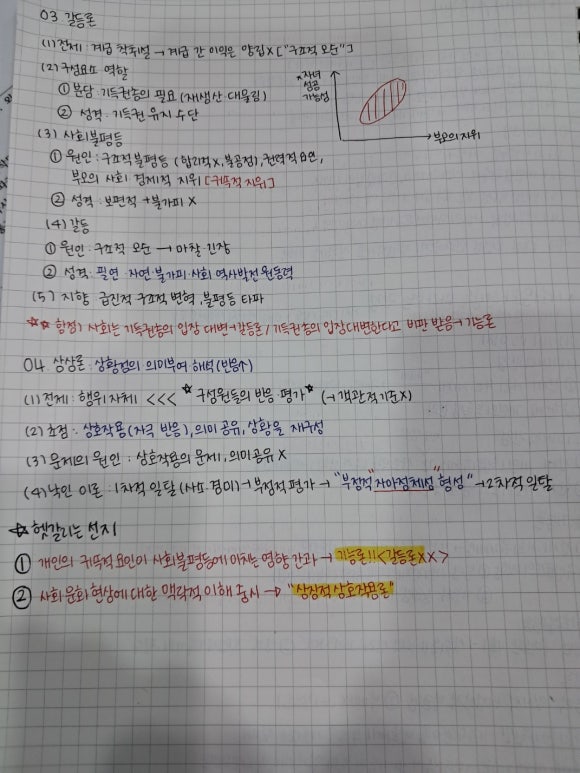 03 갈등론
(1) 전제 : 계급 착취설 → 계급 간 이익은 양립 X ["구조적 모순"]
(2) 구성요소 역할
① 분담 : 기득권층의 필요 (재생산·대물림)
② 성격 : 기득권 유지 수단
*자녀
성공
가능성
부모의 지위
(3) 사회불평등
① 원인 : 구조적 불평등 (합리적 X, 불공정), 권력적 요인,
부모의 사회 경제적 지위 [귀속적 지위]
② 성격 : 보편적 + 불가피 X
(4) 갈등
① 원인 : 구조적 모순 → 마찰 긴장
② 성격 : 필연·자연·불가피·사회 역사발전 원동력
(5) 지향 급진적 구조적 변혁, 불평등 타파
☆☆ 함정) 사회는 기득권층의 입장 대변→갈등론 / 기득권층의 입장 대변한다고 비판 받음→ 기능론
04 상상론 : 상황정의 의미부여 해석 (반응↑)
(1) 전제 : 행위 자체 <<< ☆ 구성원들의 반응·평가 ☆ (→ 객관적 기준 X)
(2) 초점 : 상호작용 (자극 반응), 의미 공유, 상황을 재구성
(3) 문제의 원인 : 상호작용의 문제, 의미공유 X
(4) 낙인 이론 : 1차적 일탈 (사소·경미) → 부정적 평가 → "부정적 "자아정체성" 형성" → 2차적 일탈
☆ 헷갈리는 선지
① 개인의 귀속적 요인이 사회불평등에 미치는 영향 간과 → 기능론!! <갈등론 X X>
② 사회 문화 현상에 대한 맥락적 이해 중시 → "상징적 상호작용론"